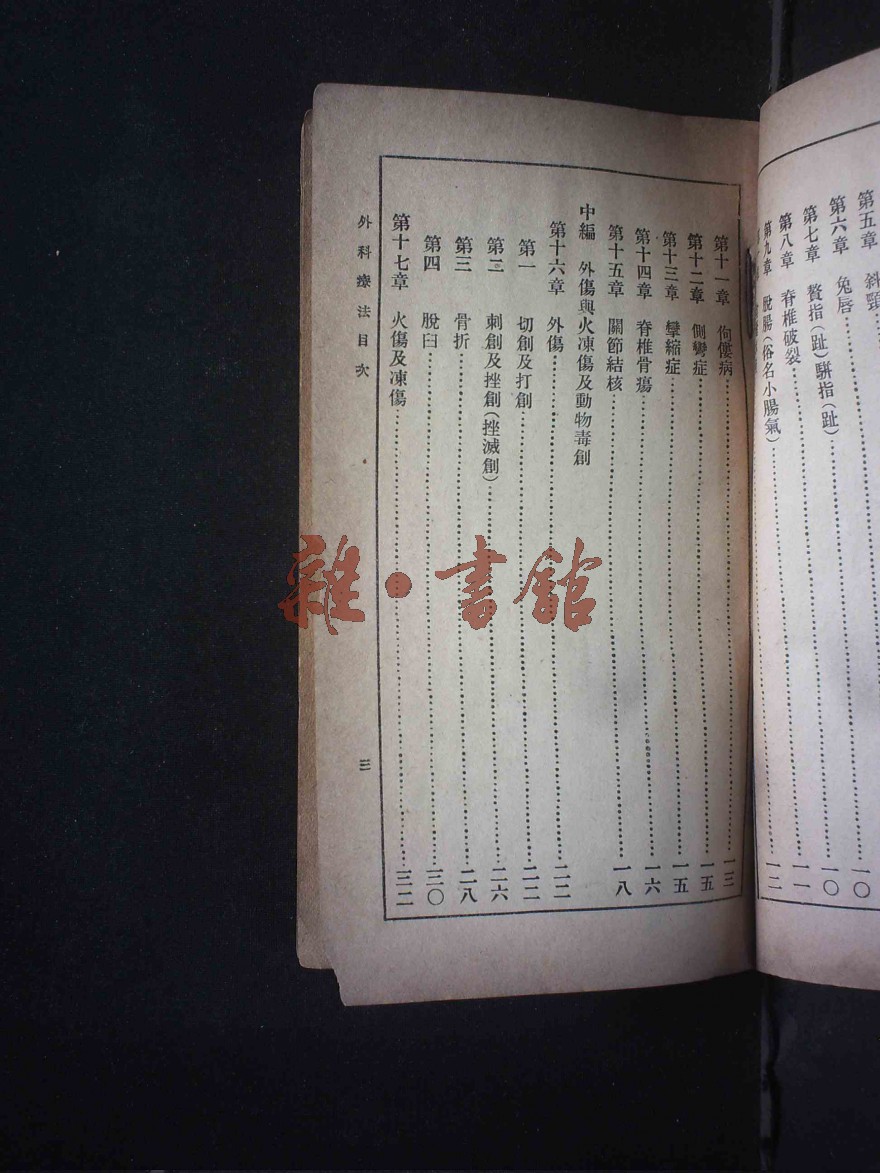 第五章 斜頸
第六章 兔唇……一〇
第七章 贅指(趾)駢指(趾)……一〇
第八章 脊椎破裂……一一
第九章 脫腸(俗名小腸氣)……一二
第十一章 佝僂病……一三
第十二章 側彎症……一五
第十三章 攣縮症……一五
第十四章 脊椎骨瘍……一六
第十五章 關節結核……一八
中編 外傷與火凍傷及動物毒創
第十六章 外傷……二二
第一 切創及打創……二二
第二 刺創及挫創(挫滅創)……二六
第三 骨折……二八
第四 脫臼……三〇
第十七章 火傷及凍傷……三二
外科療法目次
三
雜·書館